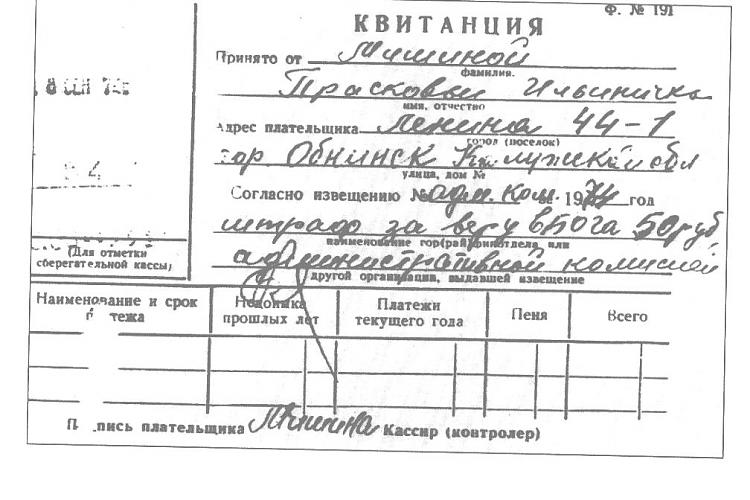 Ф. № 191
КВИТАНЦИЯ
Принято от Мишиной
фамилия.
Прасковьи Ильиничны
имя, отчество
Адрес плательщика Ленина 44-1
город (поселок)
гор Обнинск Калужской обл
улица, дом №
Согласно извещению № адм. ком. 1974 год
штраф за веру в Бога 50 руб
наименование гор(рай)финотдела или
административной комиссией
другой организации, выдавшей извещение
8 СЕН 74
(Для отметки
сберегательной кассы)
Наименование и срок
тежа
Недоимка
прошлых лет
Платежи
текущего года
Пеня
Всего
П пись плательщика Мишина Кассир (контролер)